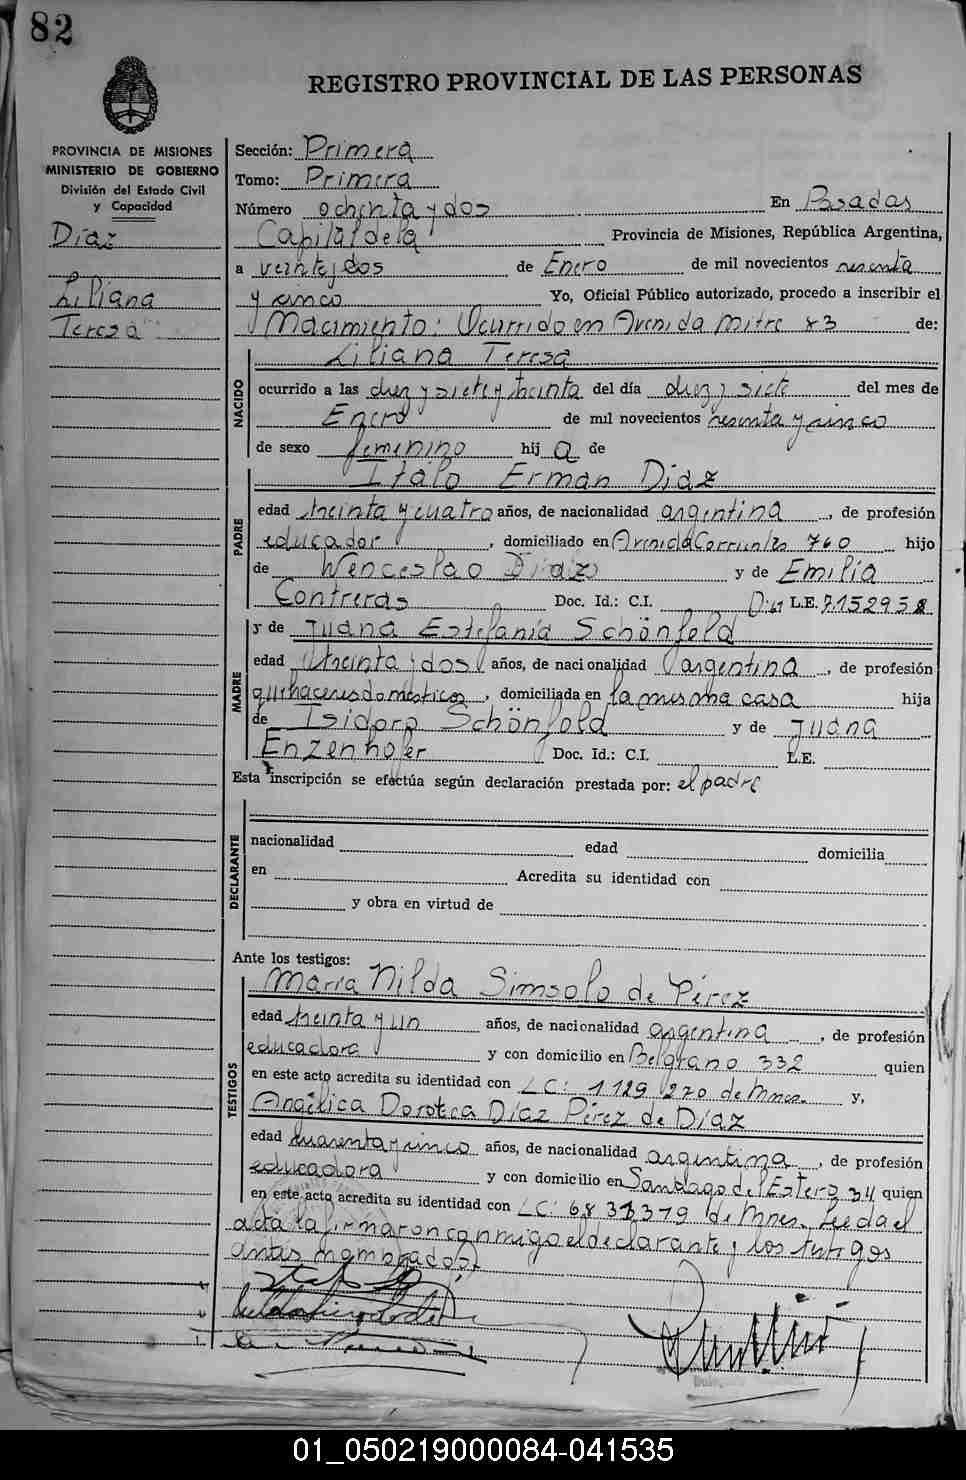 82
REGISTRO PROVINCIAL DE LAS PERSONAS
PROVINCIA DE MISIONES
MINISTERIO DE GOBIERNO
División del Estado Civil
y Capacidad
Díaz
Liliana
Teresa
Sección: Primera
Tomo: Primera
Número ochenta y dos En Posadas
Capital de la Provincia de Misiones, República Argentina,
a veintidos de Enero de mil novecientos sesenta
y cinco Yo, Oficial Público autorizado, procedo a inscribir el
Nacimiento: Ocurrido en Avenida Mitre 83 de:
NACIDO
Liliana Teresa
ocurrido a las diez y siete y treinta del día diez y siete del mes de
Enero de mil novecientos sesenta y cinco
de sexo femenino hij a de
PADRE
Italo Erman Díaz
edad treinta y cuatro años, de nacionalidad argentina, de profesión
educador, domiciliado en Avenida Corrientes 760 hijo
de Wenceslao Díaz y de Emilia
Contreras Doc. Id.: C.I. L.E. 7.152958
MADRE
y de Juana Estefanía Schönfeld
edad treinta y dos años, de nacionalidad argentina, de profesión
quehaceres domésticos, domiciliada en la misma casa hija
de Isidoro Schönfeld y de Juana
Enzenhofer Doc. Id.: C.I. L.E.
Esta inscripción se efectúa según declaración prestada por: el padre
DECLARANTE
nacionalidad edad domicilia
en Acredita su identidad con
y obra en virtud de
Ante los testigos:
TESTIGOS
María Nilda Simsolo de Pérez
edad treinta y un años, de nacionalidad argentina, de profesión
educadora y con domicilio en Belgrano 332 quien
en este acto acredita su identidad con LC: 1.129.270 de Mnes. y,
Angélica Dorotea Díaz Pérez de Díaz
edad cuarenta y cinco años, de nacionalidad argentina, de profesión
educadora y con domicilio en Santiago del Estero 34 quien
en este acto acredita su identidad con LC: de Mnes. Leeda el
acta la firmaron conmigo el declarante y los testigos
antes nombrados.
01_050219000084-041535